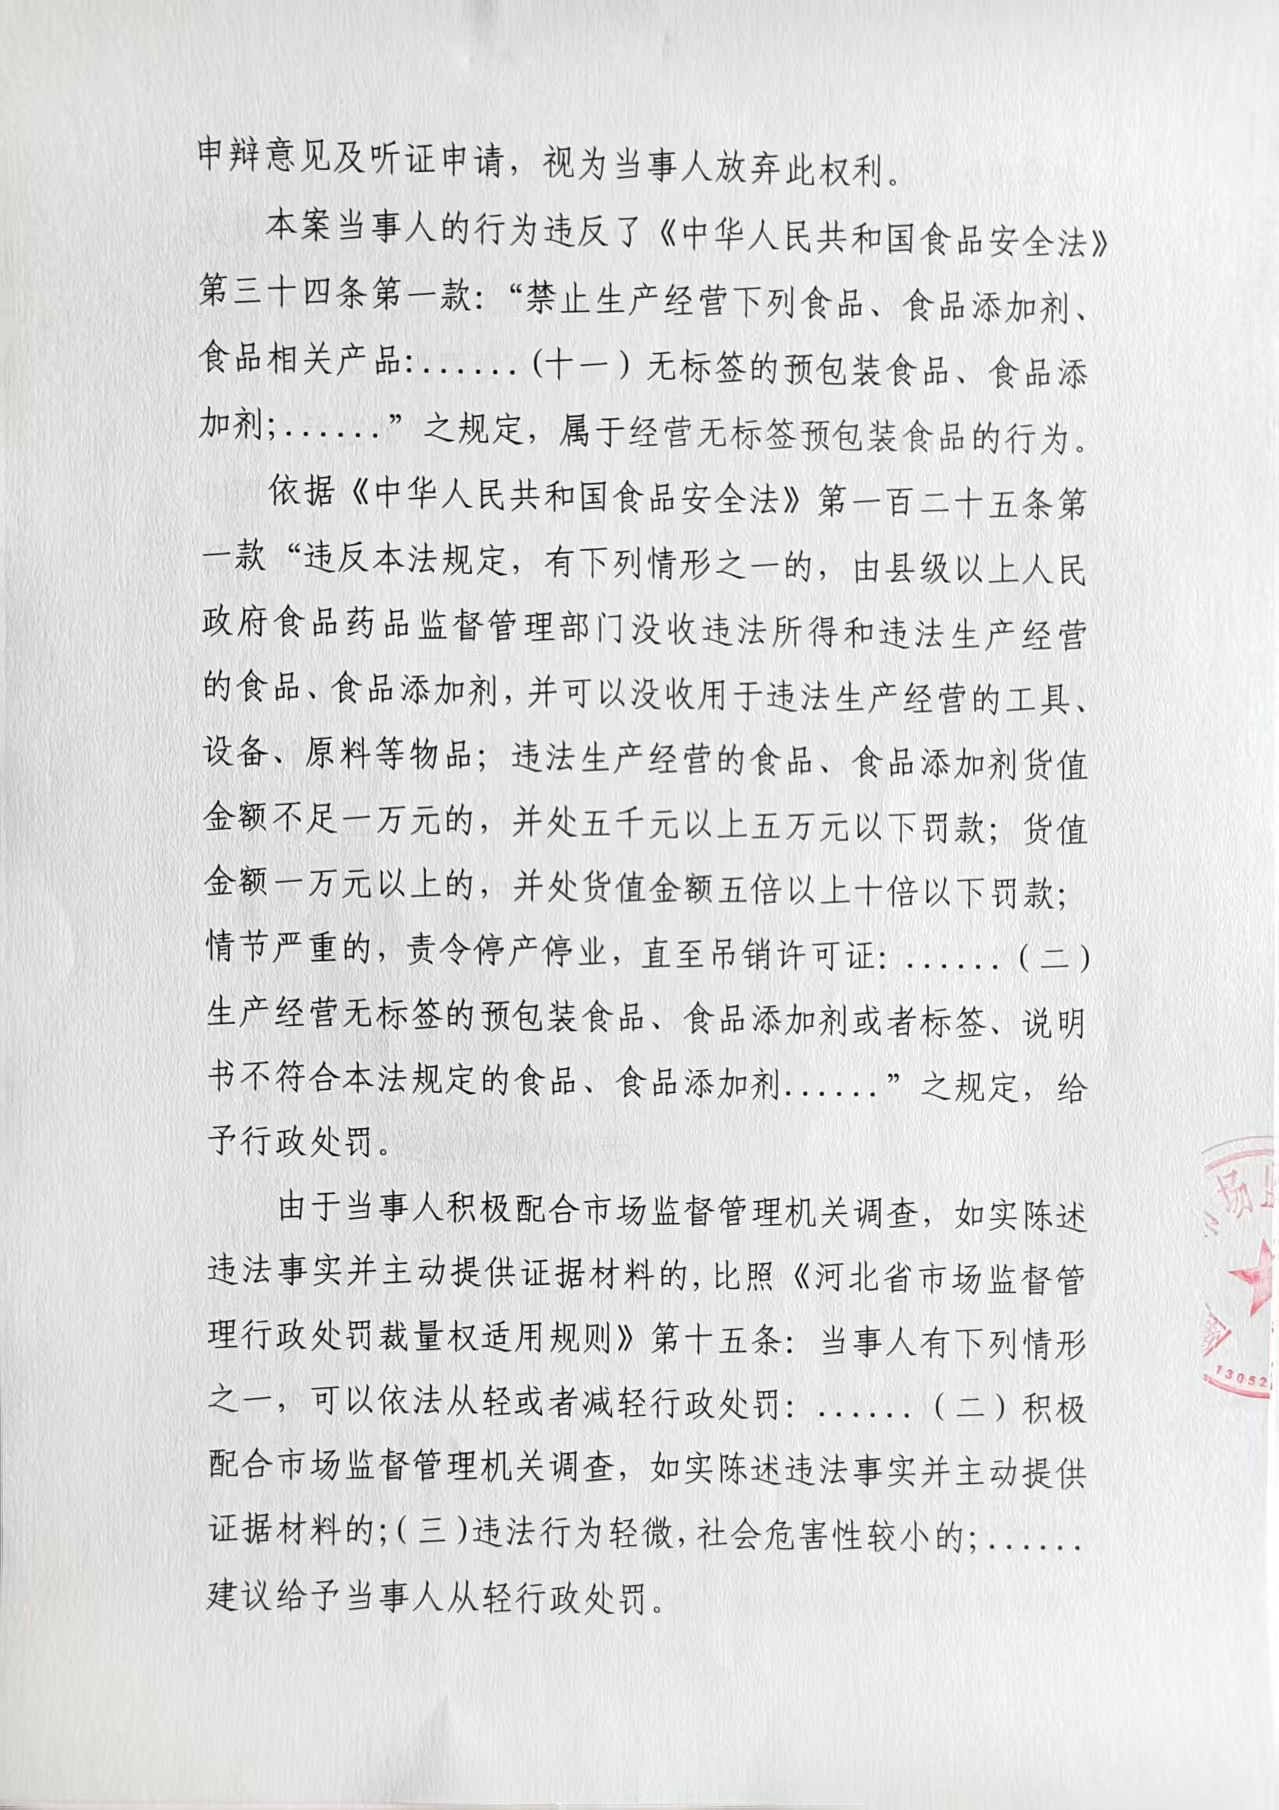 申辩意见及听证申请，视为当事人放弃此权利。
本案当事人的行为违反了《中华人民共和国食品安全法》
第三十四条第一款：“禁止生产经营下列食品、食品添加剂、
食品相关产品:......(十一)无标签的预包装食品、食品添
加剂;......”之规定，属于经营无标签预包装食品的行为。
依据《中华人民共和国食品安全法》第一百二十五条第
一款“违反本法规定，有下列情形之一的，由县级以上人民
政府食品药品监督管理部门没收违法所得和违法生产经营
的食品、食品添加剂，并可以没收用于违法生产经营的工具、
设备、原料等物品；违法生产经营的食品、食品添加剂货值
金额不足一万元的，并处五千元以上五万元以下罚款；货值
金额一万元以上的，并处货值金额五倍以上十倍以下罚款；
情节严重的，责令停产停业，直至吊销许可证：......（二）
生产经营无标签的预包装食品、食品添加剂或者标签、说明
书不符合本法规定的食品、食品添加剂......”之规定，给
予行政处罚。
由于当事人积极配合市场监督管理机关调查，如实陈述
违法事实并主动提供证据材料的，比照《河北省市场监督管
理行政处罚裁量权适用规则》第十五条：当事人有下列情形
之一，可以依法从轻或者减轻行政处罚：......（二）积极
配合市场监督管理机关调查，如实陈述违法事实并主动提供
证据材料的；（三）违法行为轻微，社会危害性较小的；......
建议给予当事人从轻行政处罚。
场
13052